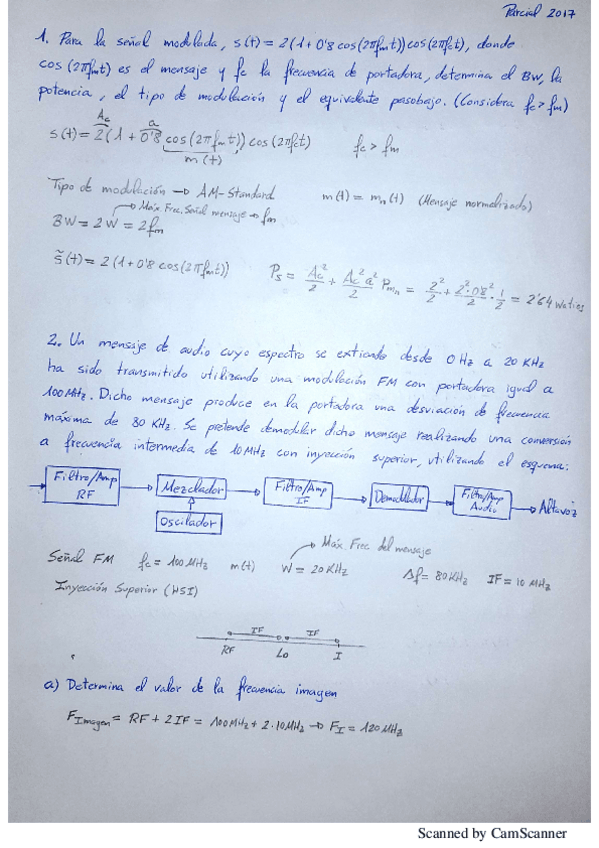 Parcial 2017
1. Para la señal modulada, s(t) = 2(1+0'8 cos(2πfmt))cos(2πfct), donde
cos(2πfmt) es el mensaje y fc la frecuencia de portadora, determina el BW, la
potencia, el tipo de modulación y el equivalente pasobajo. (Considera fc > fm)
Ac a
s(t) = 2(1 + 0'8 cos(2πfmt)) cos(2πfct) fc > fm
m(t)
Tipo de modulación → AM-Standard m(t) = mn(t) (Mensaje normalizado)
Máx. Frec. Señal mensaje → fm
BW = 2W = 2fm
s̃(t) = 2(1+0'8 cos(2πfmt)) Ps = Ac²/2 + Ac² a²/2 Pmn = 2²/2 + 2²·0'8²/2 · 1/2 = 2'64 watios
2. Un mensaje de audio cuyo espectro se extiende desde 0 Hz a 20 KHz
ha sido transmitido utilizando una modulación FM con portadora igual a
100MHz. Dicho mensaje produce en la portadora una desviación de frecuencia
máxima de 80 KHz. Se pretende demodular dicho mensaje realizando una conversión
a frecuencia intermedia de 10MHz con inyección superior, utilizando el esquema:
Filtro/Amp RF
Mezclador
Filtro/Amp IF
Demodulador
Filtro/Amp Audio
Altavoz
Oscilador
Máx. Frec del mensaje
Señal FM fc = 100MHz m(t) W = 20 KHz Δf = 80 KHz IF = 10 MHz
Inyección Superior (HSI)
IF IF
RF Lo I
a) Determina el valor de la frecuencia imagen
FImagen = RF + 2IF = 100MHz + 2·10MHz → FI = 120MHz
Scanned by CamScanner